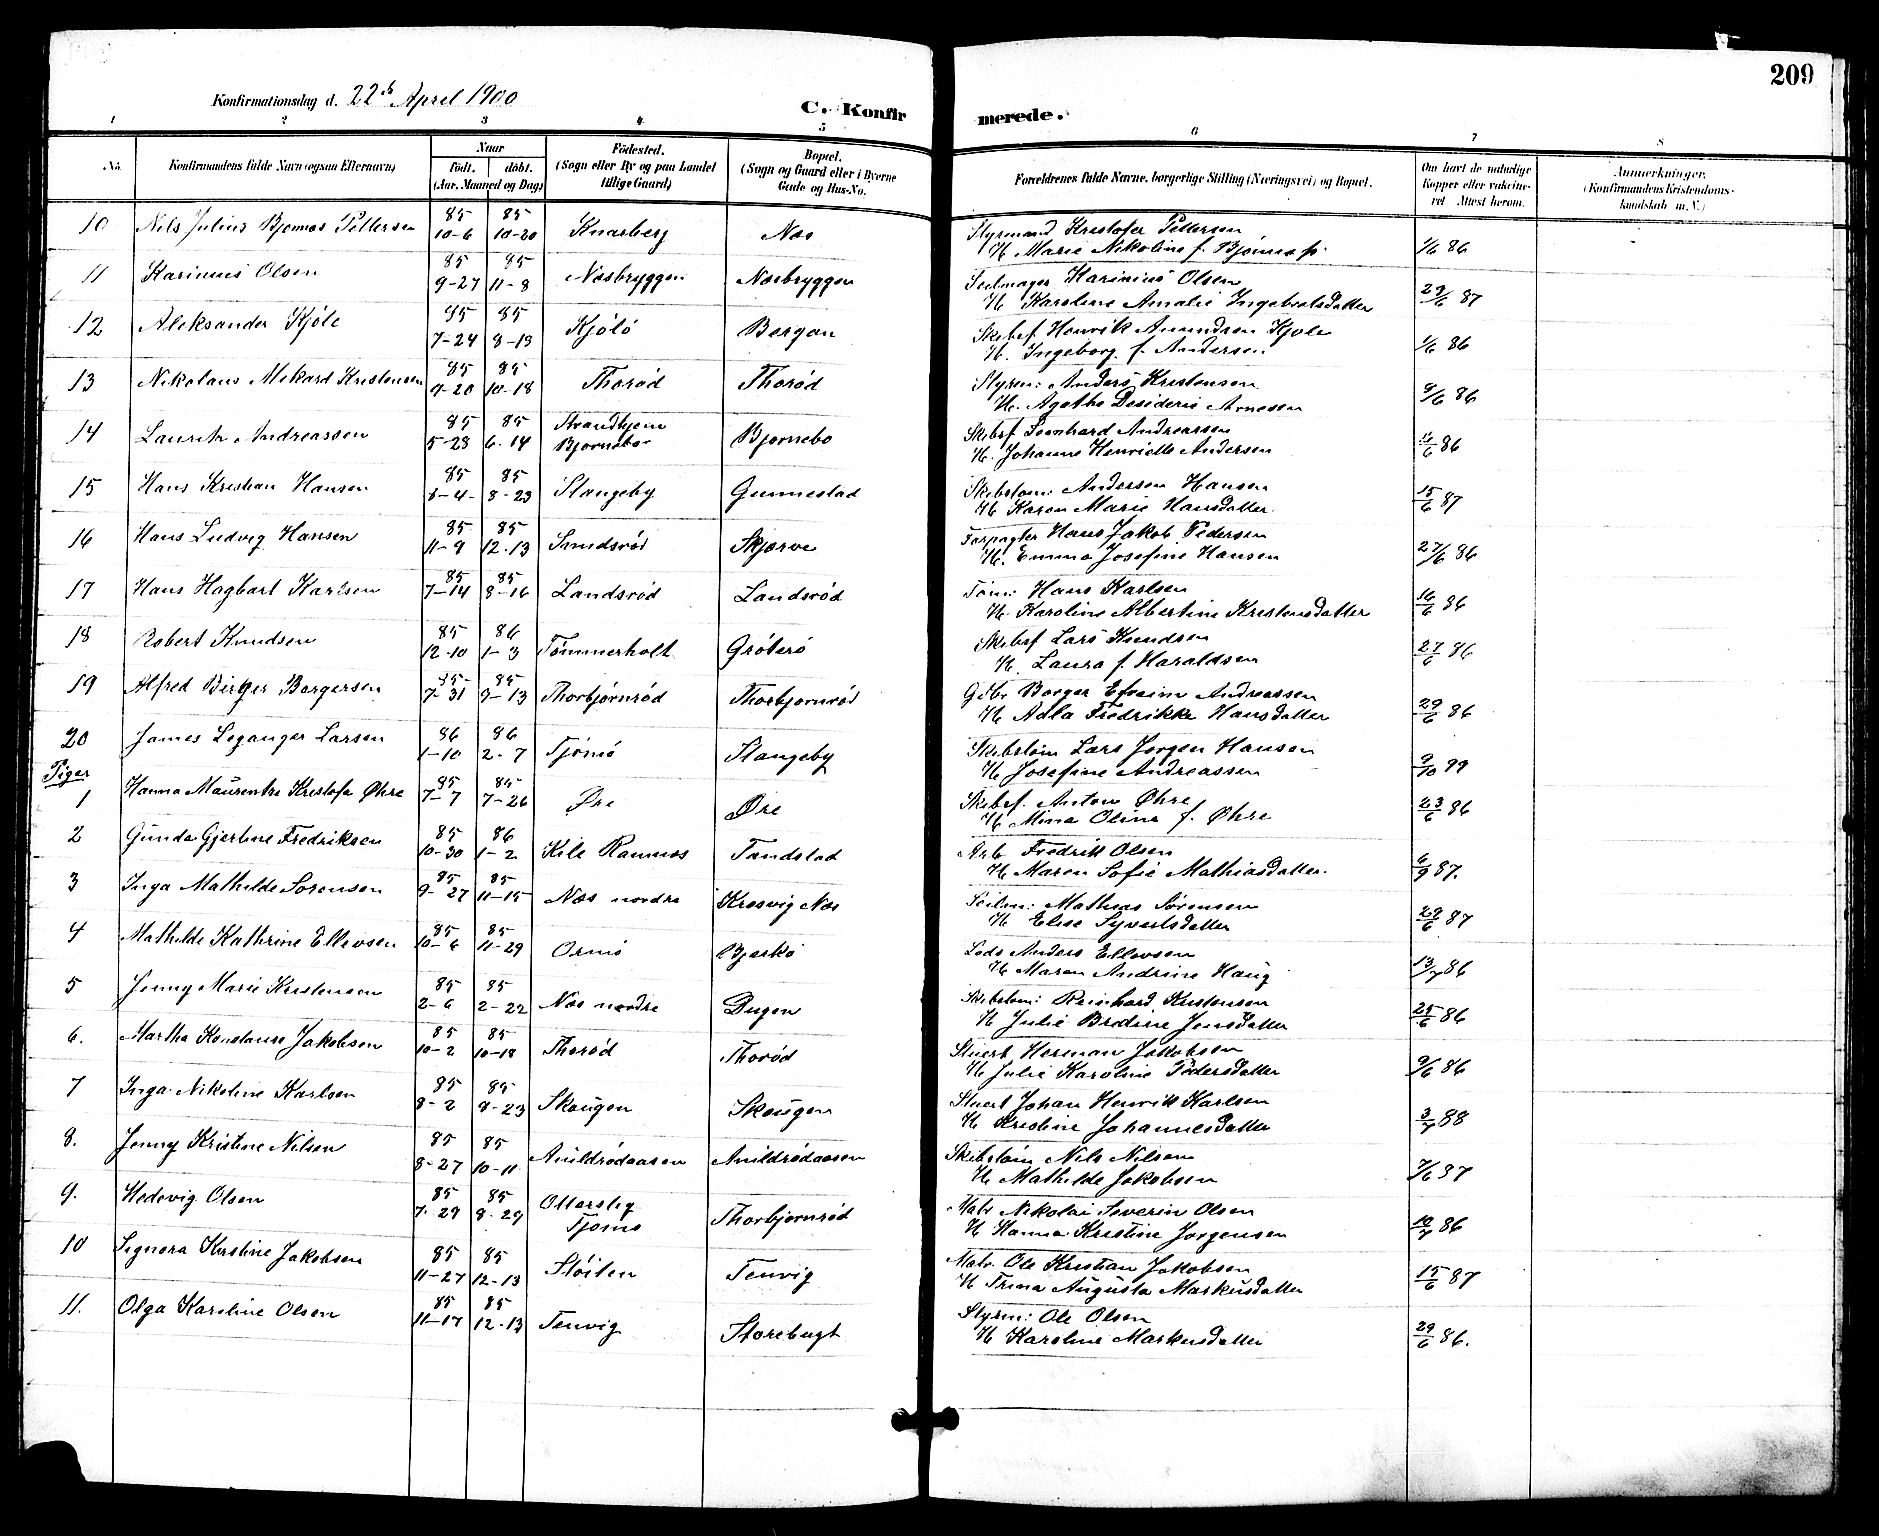 209
Konfirmationsdag d. 22de April 1900
C. Konfir
merede.
1 2 3 4 5 6 7 8
No. Konfirmandens fulde Navn (ogsaa Efternavn) Naar født. døbt. (Aar, Maaned og Dag) Fødested. (Sogn eller By og paa Landet tillige Gaard) Bopæl. (Sogn og Gaard eller i Byerne Gade og Hus-No. Forældrenes fulde Navne, borgerlige Stilling (Næringsvei) og Bopæl. Om havt de naturlige Kopper eller vaccineret Attest herom. Anmerkninger. (Konfirmandens Kristendomskundskab m. V.)
10 Nils Julius Bjønnes Pettersen 85 10-6 85 10-20 Knarberg Næs Styrmand Kristofer Pettersen
H. Marie Nikoline f. Bjønnes 1/6 86
11 Karinius Olsen 85 9-27 85 11-8 Næsbryggen Næsbryggen Seilmager Karinius Olsen
H. Karoline Amalie Ingebretsdatter 29/6 87
12 Aleksander Kjøle 85 7-24 85 8-13 Kjøle Bergan Skibsf Henrik Amundsen Kjøle
H. Ingeborg f. Andersen 1/6 86
13 Nikolaus Mekard Kristensen 85 9-20 85 10-18 Thorød Thorød Styrm: Anders Kristensen
H. Agathe Desideria Arnesen 9/6 86
14 Lauritz Andreassen 85 5-23 85 6-14 Strandhjem Bjørnebo Bjørnebo Skibsf Leonhard Andreassen
H. Johanne Henriette Andersen 11/6 86
15 Hans Kristian Hansen 85 8-4 85 8-23 Stangeby Gunnestad Skibstøm: Andersen Hansen
H Karen Marie Hansdatter 15/6 87
16 Hans Ludvig Hansen 85 11-9 85 12-13 Smidsrød Skjærve Forpagter Hans Jakob Pedersen
H. Emma Josefine Hansen 27/6 86
17 Hans Hagbart Karlsen 85 7-14 85 8-16 Landsrød Landsrød Tøm: Hans Karlsen
H. Karoline Albertine Kristensdatter 16/6 86
18 Robert Knudsen 85 12-10 86 1-3 Tømmerholt Grøterø Skibsf Lars Knudsen
H. Laura f. Haraldsen 27/6 86
19 Alfred Birger Borgersen 85 7-31 85 9-13 Thorbjørnrød Thorbjørnrød Gdbr Borger Efraim Andreassen
H. Adla Fredrikke Hansdatter 29/6 86
20 James Leganger Larsen 86 1-10 86 2-7 Tjømø Stangeby Skibstøm Lars Jørgen Hansen
H Josefine Andreassen 9/10 99
Piger
1 Hanna Maurentse Kristofa Øhre 85 7-7 85 7-26 Øre Øre Skibsf. Anton Øhre
H. Mina Oline f. Øhre 23/6 86
2 Gunda Gjertine Fredriksen 85 10-30 86 1-2 Kile Ramnæs Tandstad Arb Fredrik Olsen
H. Maren Sofie Mathiasdatter. 6/9 87.
3 Inga Mathilde Sørensen 85 9-27 85 11-15 Næs nordre Krosvig Næs Seilm: Mathias Sørensen
H. Elise Syvertsdatter 22/6 87
4 Mathilde Kathrine Ellevsen 85 10-6 85 11-29 Ormø Bjerkø Lods Anders Ellevsen
H Maren Andrine Haug 13/7 86
5 Jenny Marie Kristensen 85 2-6 85 2-22 Næs nordre Dugen Skibstøm: Reinhard Kristensen
H Julie Bredine Jensdatter 25/6 86
6. Martha Konstanse Jakobsen 85 10-2 85 10-18 Thorød Thorød Stuert Herman Jakobsen
H. Julie Karoline Pedersdatter 9/6 86
7 Inga Nikoline Karlsen 85 8-2 85 8-23 Skougen Skougen Stuert Johan Henrik Karlsen
H. Kristine Johannesdatter 3/7 88
8. Jenny Kristine Nilsen 85 8-27 85 10-11 Anildrødaasen Anildrødaasen Skibstøm Nils Nilsen
H. Mathilde Jakobsen 7/6 87
9. Hedevig Olsen 85 7-29 85 8-29 Ottersleg Tjømø Thorbjørnrød Matr Nikolai Severin Olsen
H Hanna Kristine Jørgensen 10/7 86
10 Signora Kristine Jakobsen 85 11-27 85 12-13 Støiten Tenvig Matr. Ole Kristian Jakobsen
H Trina Augusta Markusdatter 15/6 87
11. Olga Karoline Olsen 85 11-17 85 12-13 Tenvig Storebugt Styrm: Ole Olsen
H Karoline Markusdatter 29/6 86.